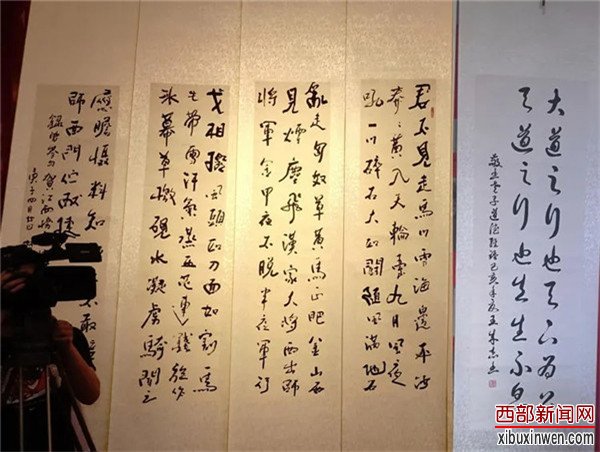 大道之行也天下为
天道之行也生生不息
君不見走馬川雪海邊平沙
莽莽黃入天輪臺九月風夜
吼一川碎石大如鬭隨風滿地石
亂走匈奴草黃馬正肥金山西
見煙塵飛漢家大將西出師
將軍金甲夜不脫半夜軍行
戈相撥風頭如刀面如割馬
毛帶雪汗氣蒸五花連錢旋作
冰幕草檄硯水凝虜騎聞之
應膽慑料知 不敢
師西門伫献捷
庚子四月
西部新闻网
xibuxinwen.com